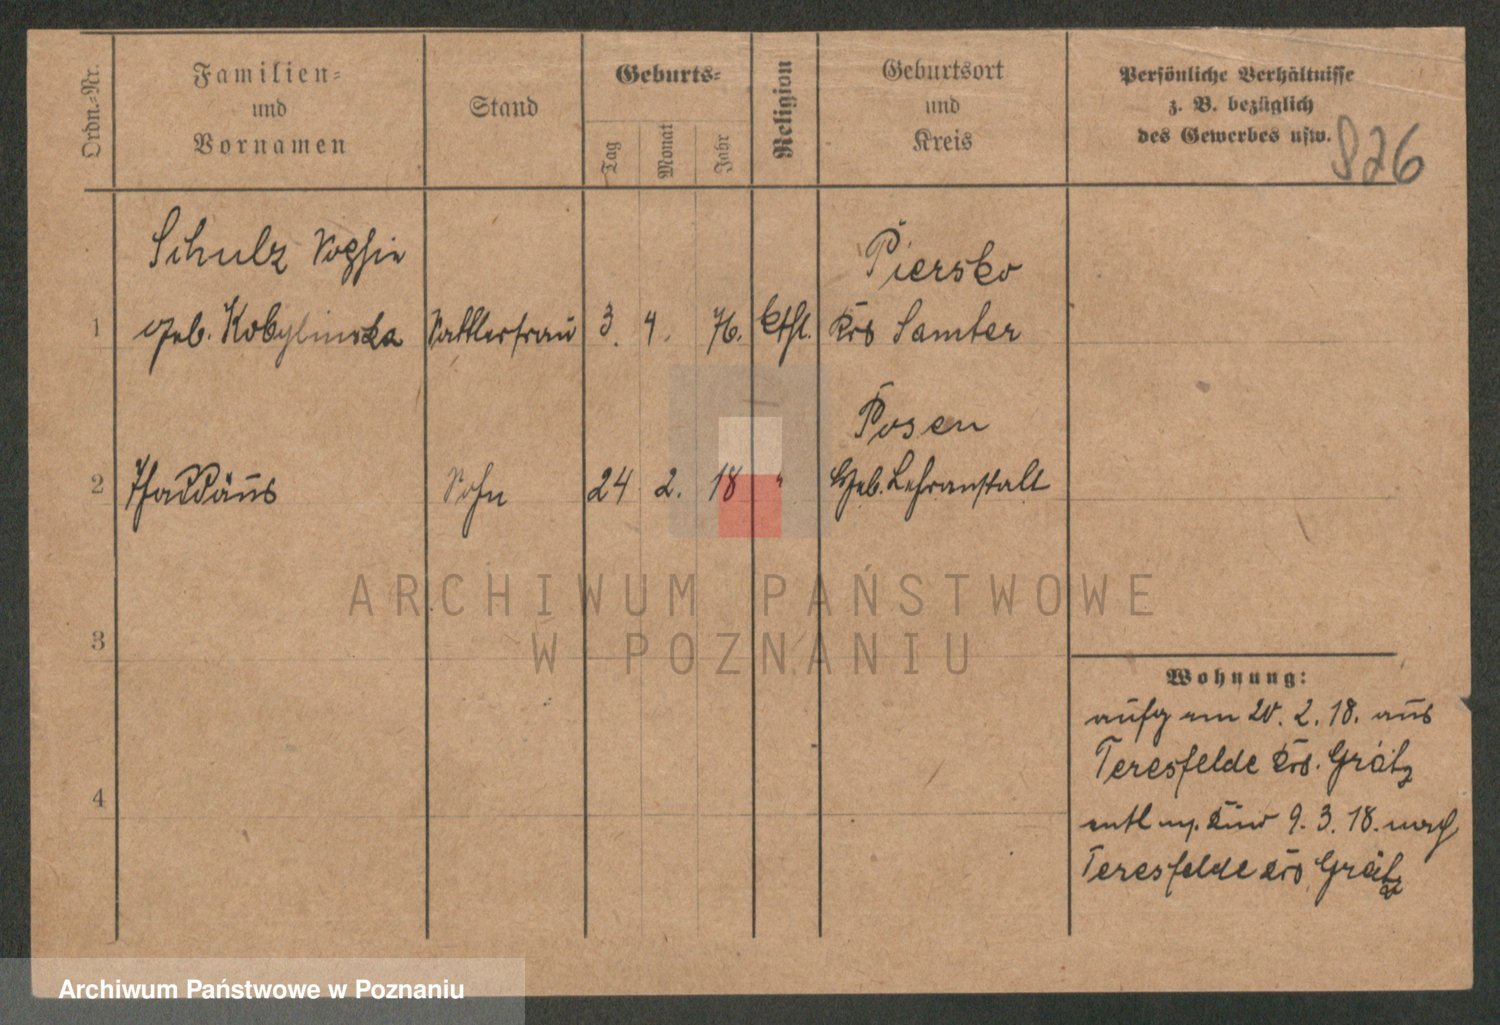 Ordn.-Nr.
Familien-
und
Vornamen
Stand
Geburts-
Tag
Monat
Jahr
Religion
Geburtsort
und
Kreis
Persönliche Verhältnisse
z. B. bezüglich
des Gewerbes usw.
826
Schulz Sophie
1 geb. Kobylinska Sattlerfrau 3. 4. 76. kthl.
Piersko
Krs Samter
2 Thaddäus Sohn 24 2. 18 "
Posen
Geb. Lehranstalt
3
4
Wohnung:
aufg am 20. 2. 18. aus
Teresfelde Krs. Grätz
entl m. Kind 9. 3. 18. nach
Teresfelde Krs Grätz
ARCHIWUM PAŃSTWOWE
W POZNANIU
Archiwum Państwowe w Poznaniu